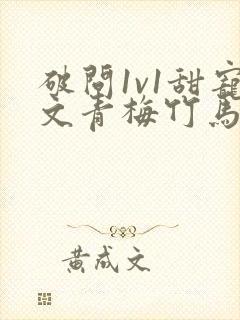 破閆1v1甜寵
文青梅竹馬
黄成文